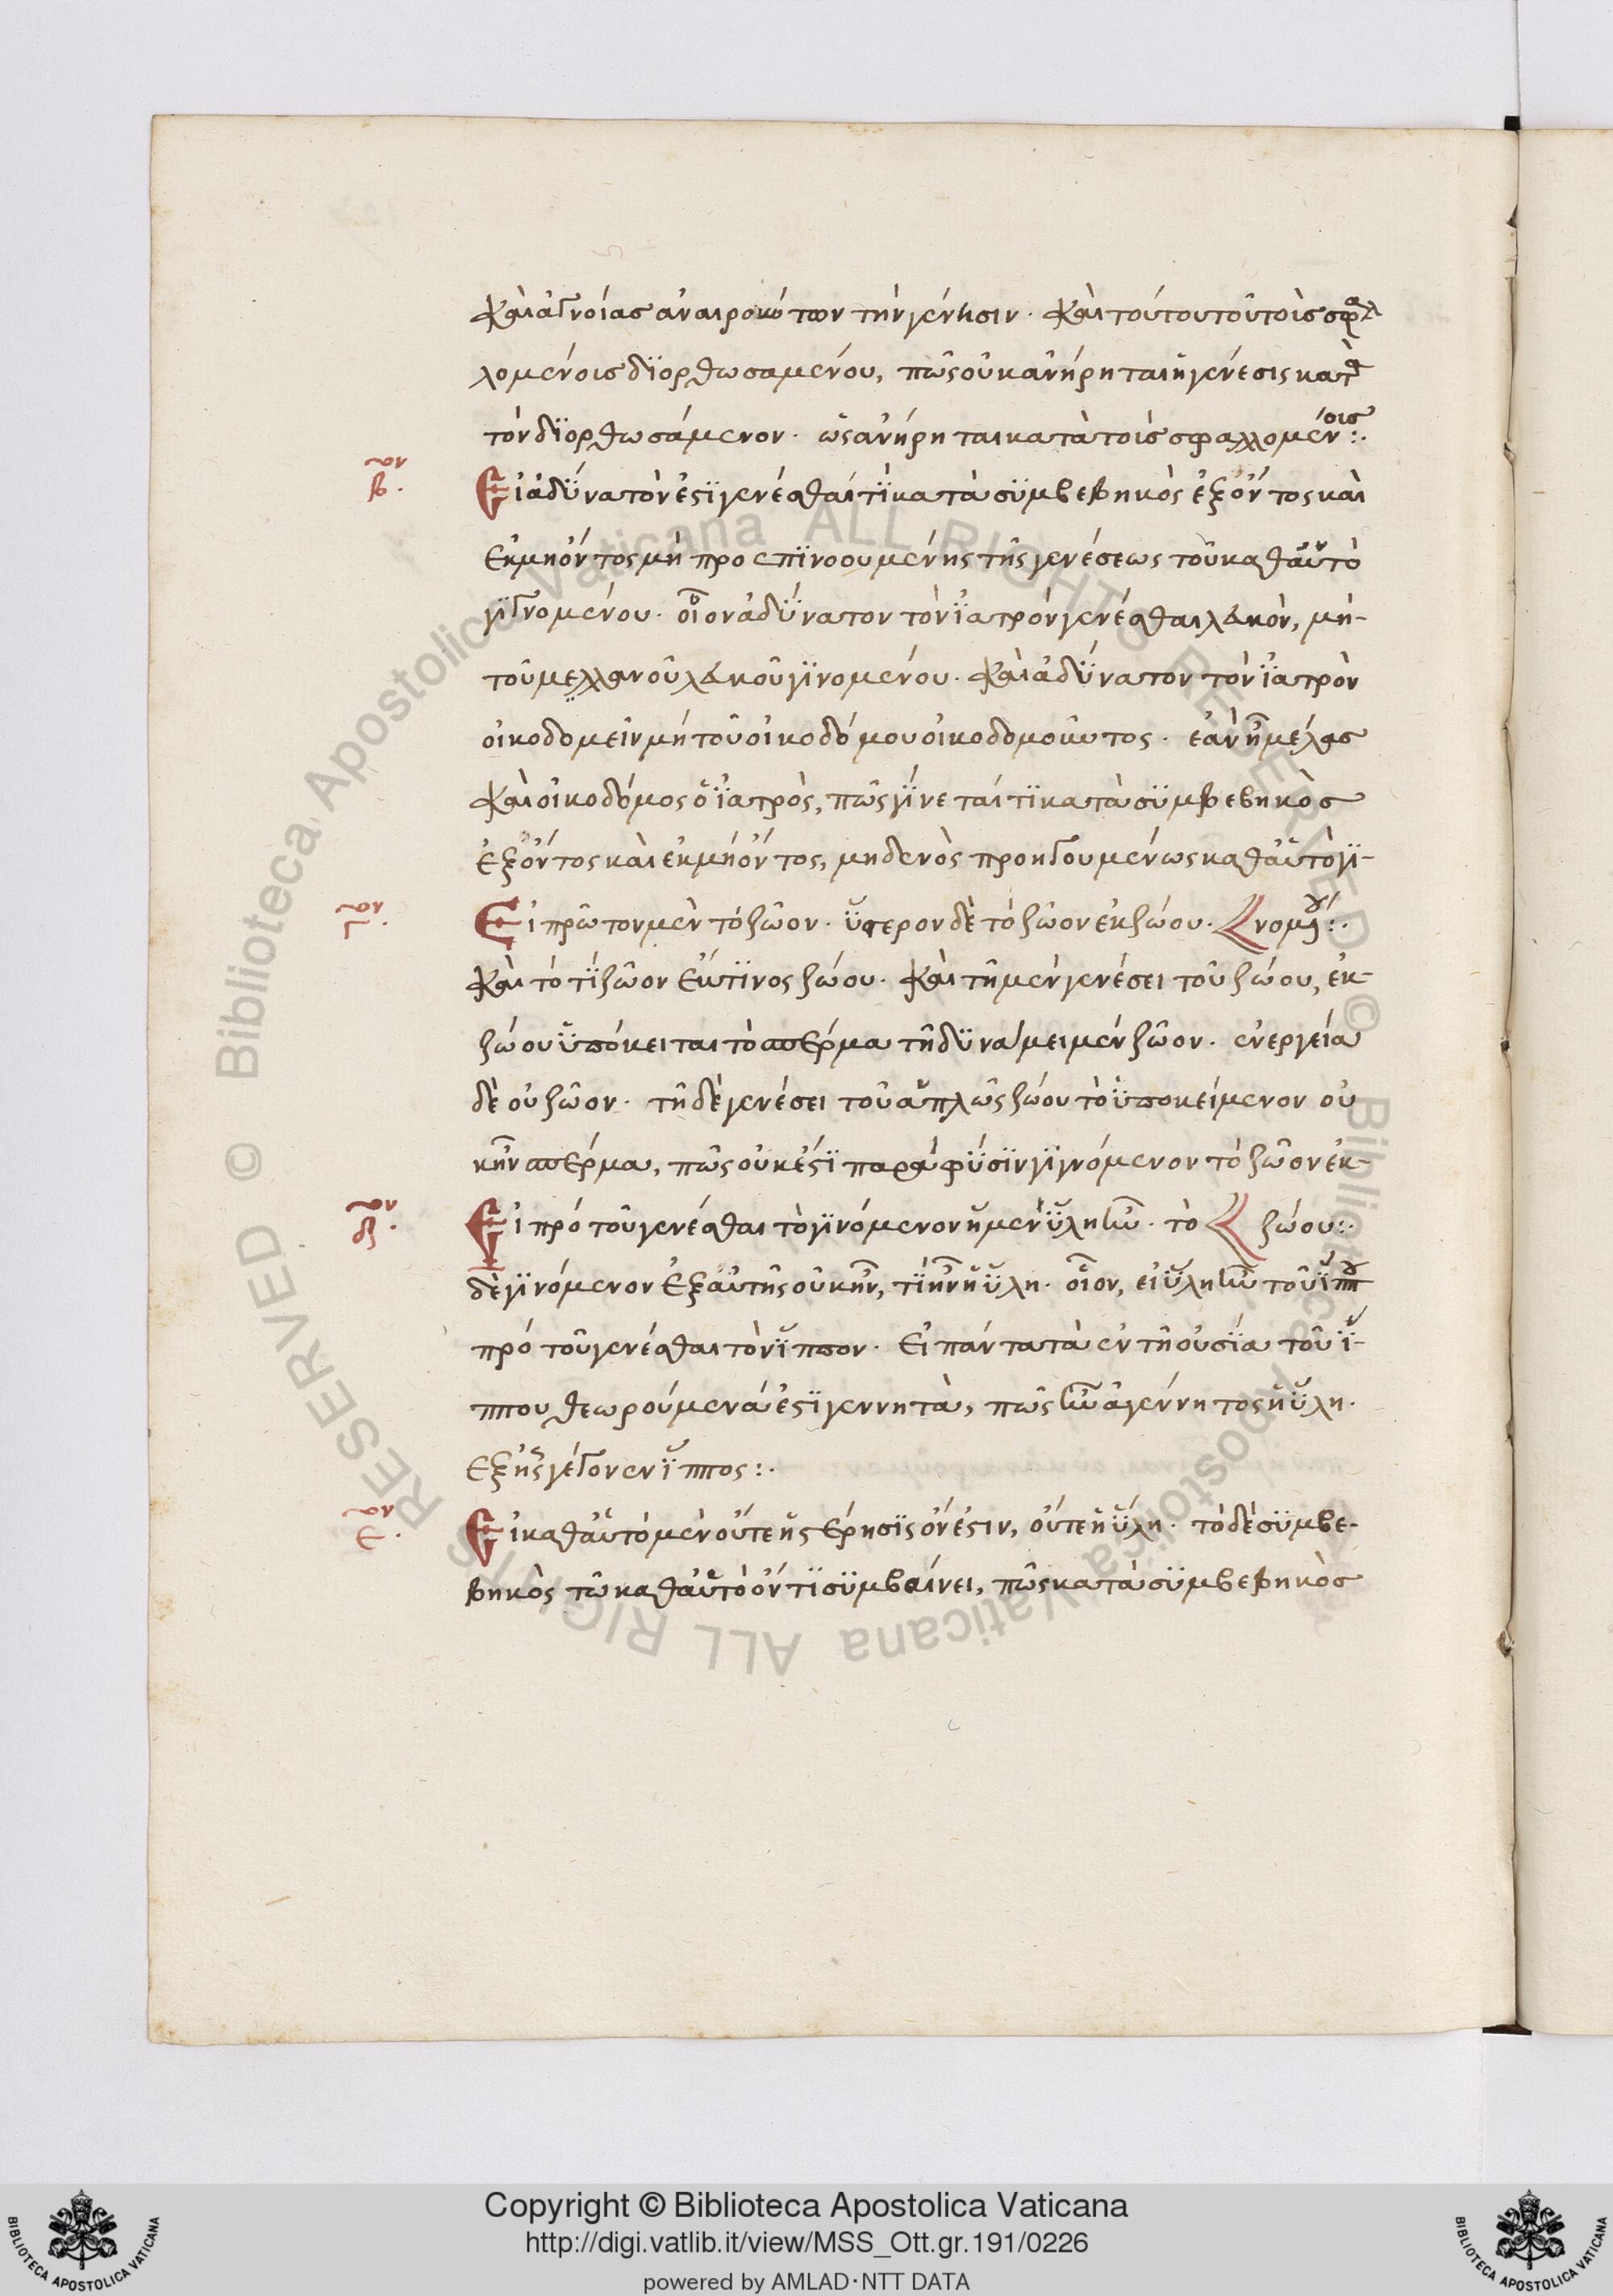 καὶ ἀγνοίας ἀναιρούντων τὴν γένησιν. καὶ τούτου τοῦ τοῖς σφαλ
λομένοις διορθωσαμένου, πῶς οὐκ ἀνήρηται ἡ γένεσις κατὰ
τὸν διορθωσάμενον. ὡς ἀνήρηται κατὰ τοῖς σφαλλομένοις:.
ιον β. Εἰ ἀδύνατον ἐστὶ γενέσθαι τὶ κατὰ συμβεβηκὸς ἐξ ὄντος καὶ
ἐκ μὴ ὄντος μὴ προεπινοουμένης τῆς γενέσεως τοῦ καθ' αὑτὸ
γιγνομένου. οἷον ἀδύνατον τὸν ἰατρὸν γενέσθαι λευκὸν, μὴ-
τοῦ μέλλανου λευκοῦ γινομένου. καὶ ἀδύνατον τὸν ἰατρὸν
οἰκοδομεῖν μὴ τοῦ οἰκοδόμου οἰκοδομοῦντος. ἐὰν ἦ μέλας
καὶ οἰκοδόμος ὁ ἰατρὸς, πῶς γίνεταί τι κατὰ συμβεβηκὸς
ἐξ ὄντος καὶ ἐκ μὴ ὄντος, μηδενὸς προηγουμένως καθ' αὑτὸ γι-
νομένου:.
ιον γ. Εἰ πρῶτον μὲν τὸ ζῶον. ὕστερον δὲ τὸ ζῶον ἐκ ζώου.
καὶ τὸ τὶ ζῶον ἔκ τινος ζώου. καὶ τῆ μὲν γενέσει τοῦ ζώου, ἐκ-
ζώου ὑπόκειται τὸ σπέρμα τῆ δυνάμει μὲν ζῶον. ἐνεργεία
δὲ οὐ ζῶον. τῆ δὲ γενέσει τοῦ ἁπλῶς ζώου τὸ ὑποκείμενον οὐ
κ ἦν σπέρμα, πῶς οὐκ ἔστι παρὰ φύσιν γιγνόμενον τὸ ζῶον ἐκ-
ζώου:.
ιον δ. Εἰ πρὸ τοῦ γενέσθαι τὸ γινόμενον ἡ μὲν ὕλη ἦν. τὸ
δὲ γινόμενον ἐξ αὐτῆς οὐκ ἦν, τί ἦν ἡ ὕλη. οἷον, εἰ ὕλη ἦν τοῦ ἵππου
πρὸ τοῦ γενέσθαι τὸν ἵππον. εἰ πάντα τὰ ἐν τῆ οὐσία τοῦ ἵ-
ππου θεωρούμενά ἐστι γεννητὰ, πῶς ἦν ἀγέννητος ἡ ὕλη.
ἐξ ἧς γέγονεν ἵππος:.
ιον ε. Εἰ καθ' αὑτὸ μὲν οὔτε ἡ στέρησις ὄν ἐστιν, οὔτε ἡ ὕλη. τὸ δὲ συμβε-
βηκὸς τῶ καθ' αὑτὸ ὄντι συμβαίνει, πῶς κατὰ συμβεβηκὸς
Copyright © Biblioteca Apostolica Vaticana
http://digi.vatlib.it/view/MSS_Ott.gr.191/0226
powered by AMLAD·NTT DATA
BIBLIOTECA APOSTOLICA VATICANA
BIBLIOTECA APOSTOLICA VATICANA
© Biblioteca Apostolica Vaticana ALL RIGHTS RESERVED
© Biblioteca Apostolica Vaticana ALL RIGHTS RESERVED